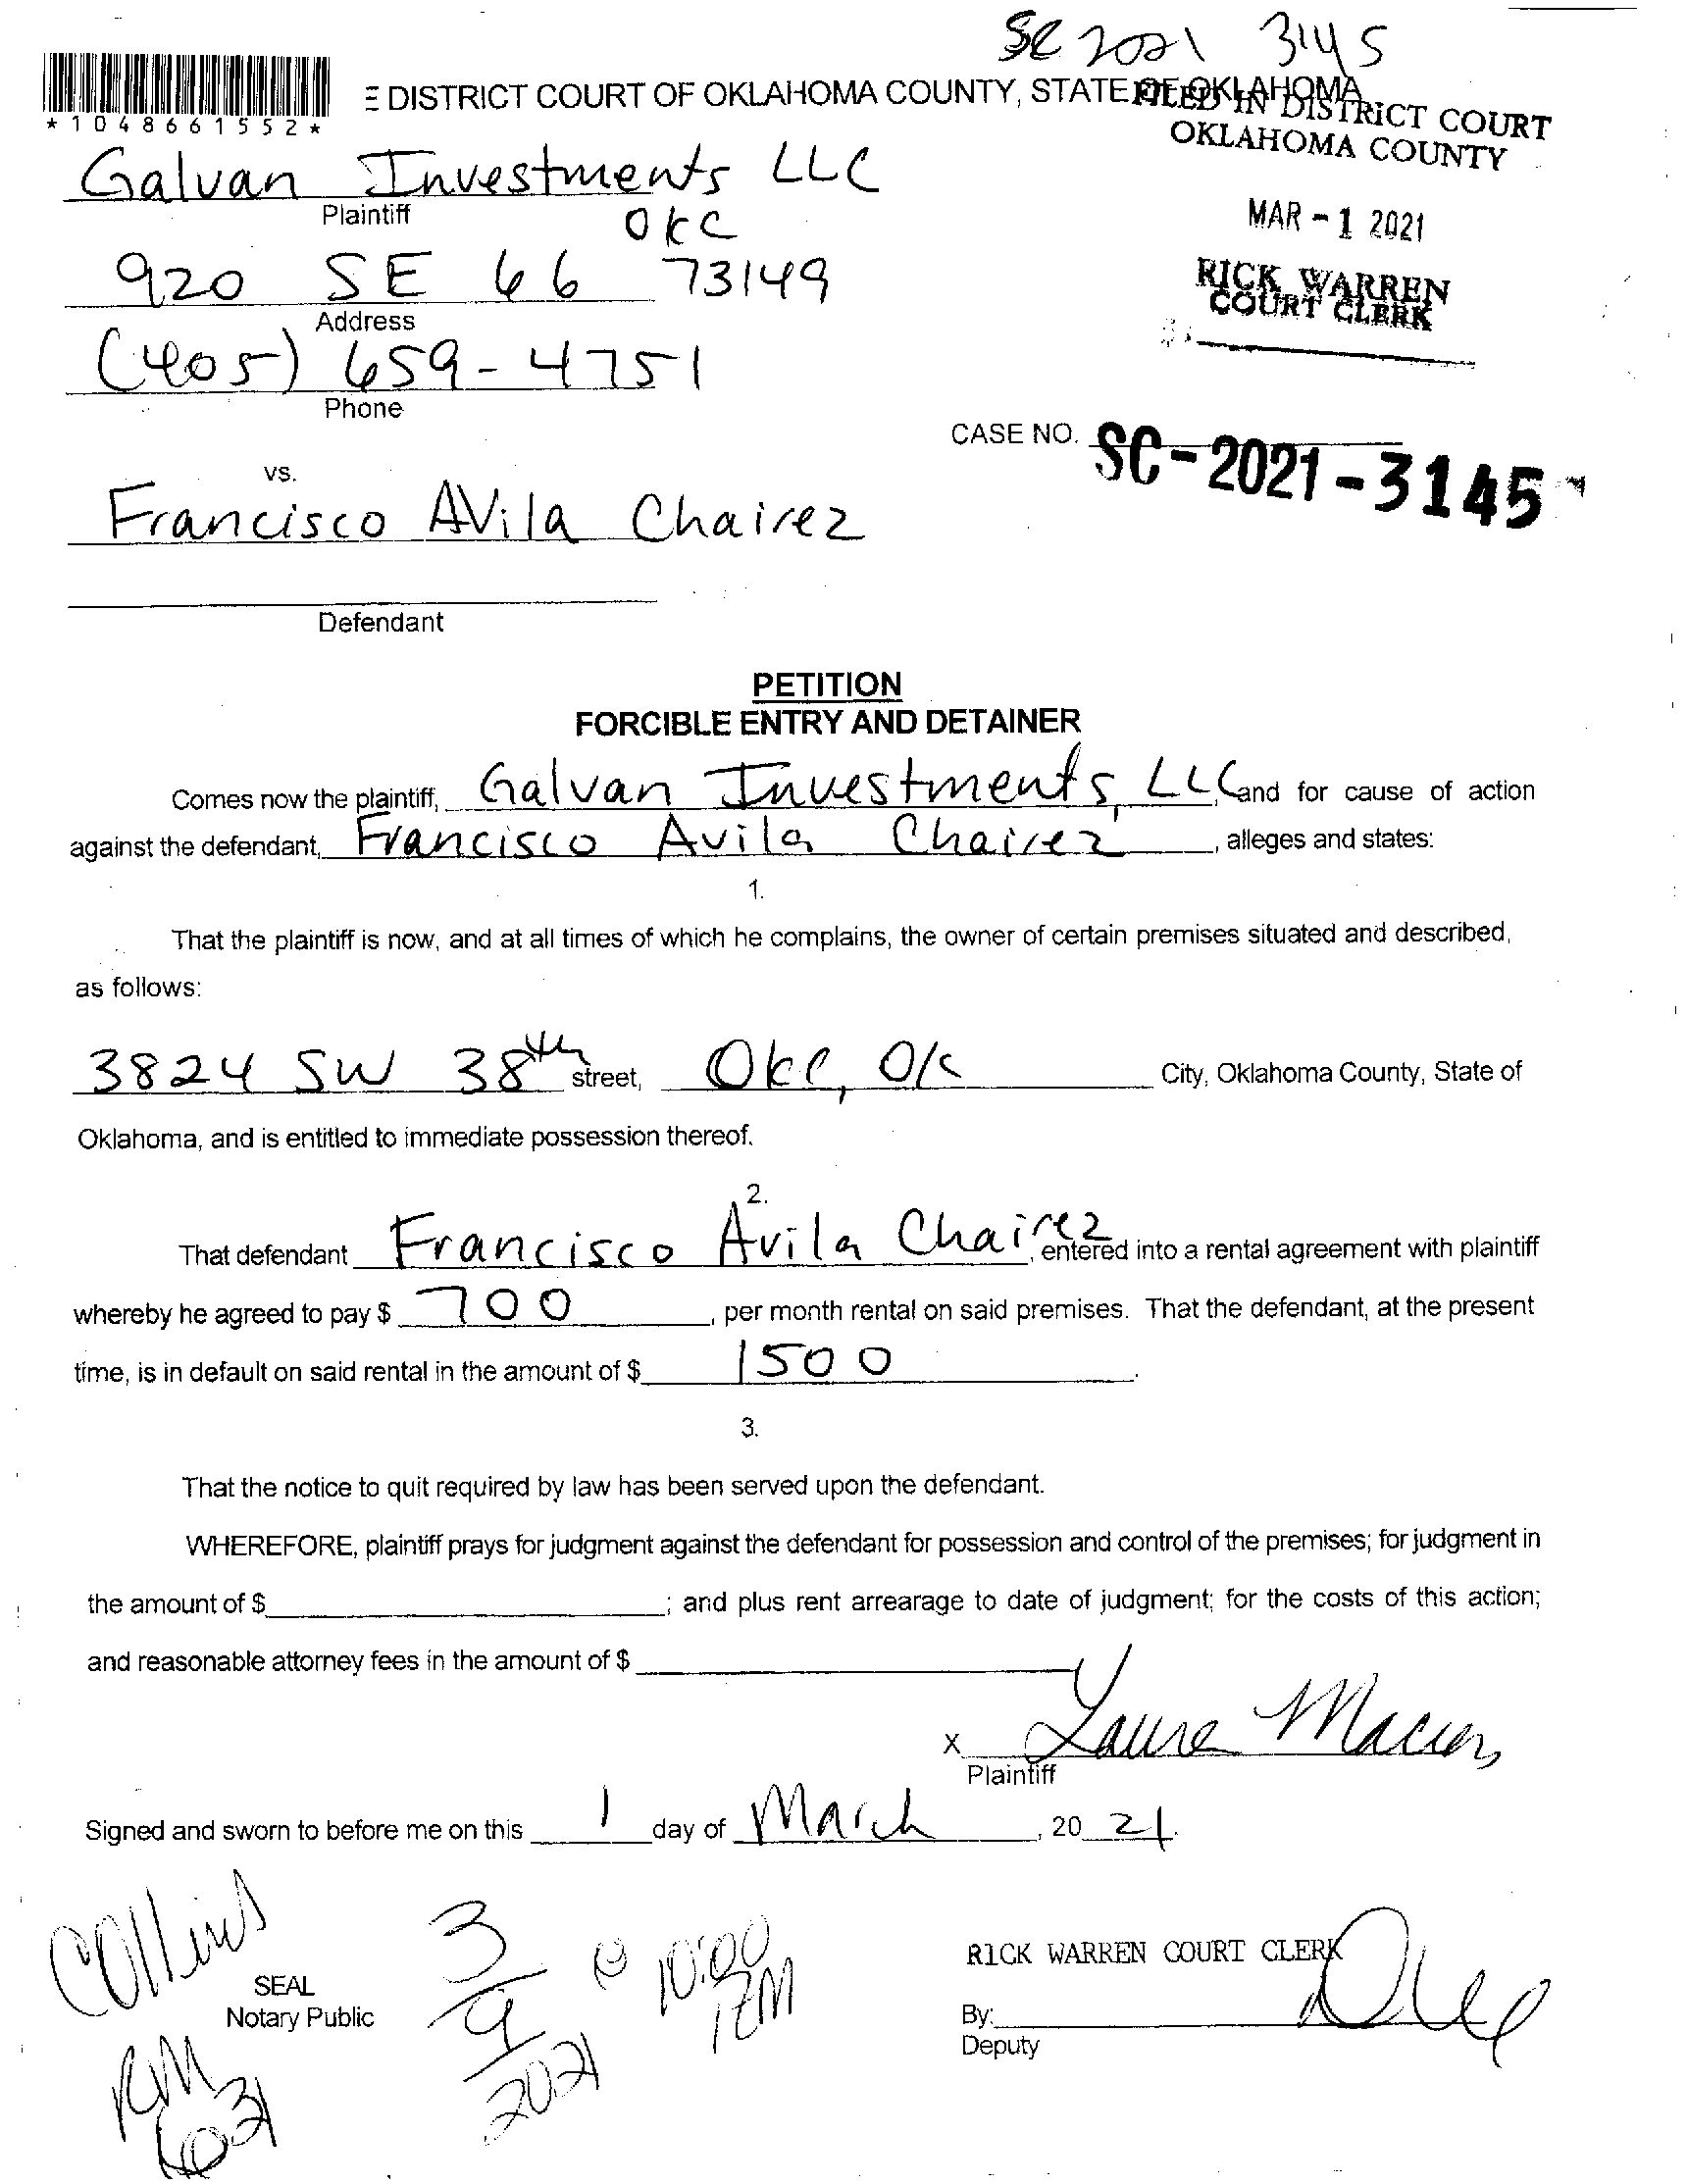 SC 2021 3145
*1048661552*
E DISTRICT COURT OF OKLAHOMA COUNTY, STATE OF OKLAHOMA
FILED IN DISTRICT COURT
OKLAHOMA COUNTY
Galvan Investments LLC
Plaintiff
MAR - 1 2021
OKC
920 SE 66 73149
Address
RICK WARREN
COURT CLERK
(405) 659-4751
Phone
CASE NO. SC-2021-3145
vs.
Francisco AVila Chairez
Defendant
PETITION
FORCIBLE ENTRY AND DETAINER
Comes now the plaintiff, Galvan Investments, LLC, and for cause of action
against the defendant, Francisco Avila Chairez, alleges and states:
1.
That the plaintiff is now, and at all times of which he complains, the owner of certain premises situated and described,
as follows:
3824 SW 38th street, OKC, OK City, Oklahoma County, State of
Oklahoma, and is entitled to immediate possession thereof.
2.
That defendant Francisco Avila Chairez, entered into a rental agreement with plaintiff
whereby he agreed to pay $ 700, per month rental on said premises. That the defendant, at the present
time, is in default on said rental in the amount of $ 1500.
3.
That the notice to quit required by law has been served upon the defendant.
WHEREFORE, plaintiff prays for judgment against the defendant for possession and control of the premises; for judgment in
the amount of $ ; and plus rent arrearage to date of judgment; for the costs of this action;
and reasonable attorney fees in the amount of $
x Laura
Plaintiff
Signed and sworn to before me on this 1 day of March, 20 21.
Collins
3/9/2021 @ 10:00 AM
SEAL
Notary Public
RM
RICK WARREN COURT CLERK
By:
Deputy